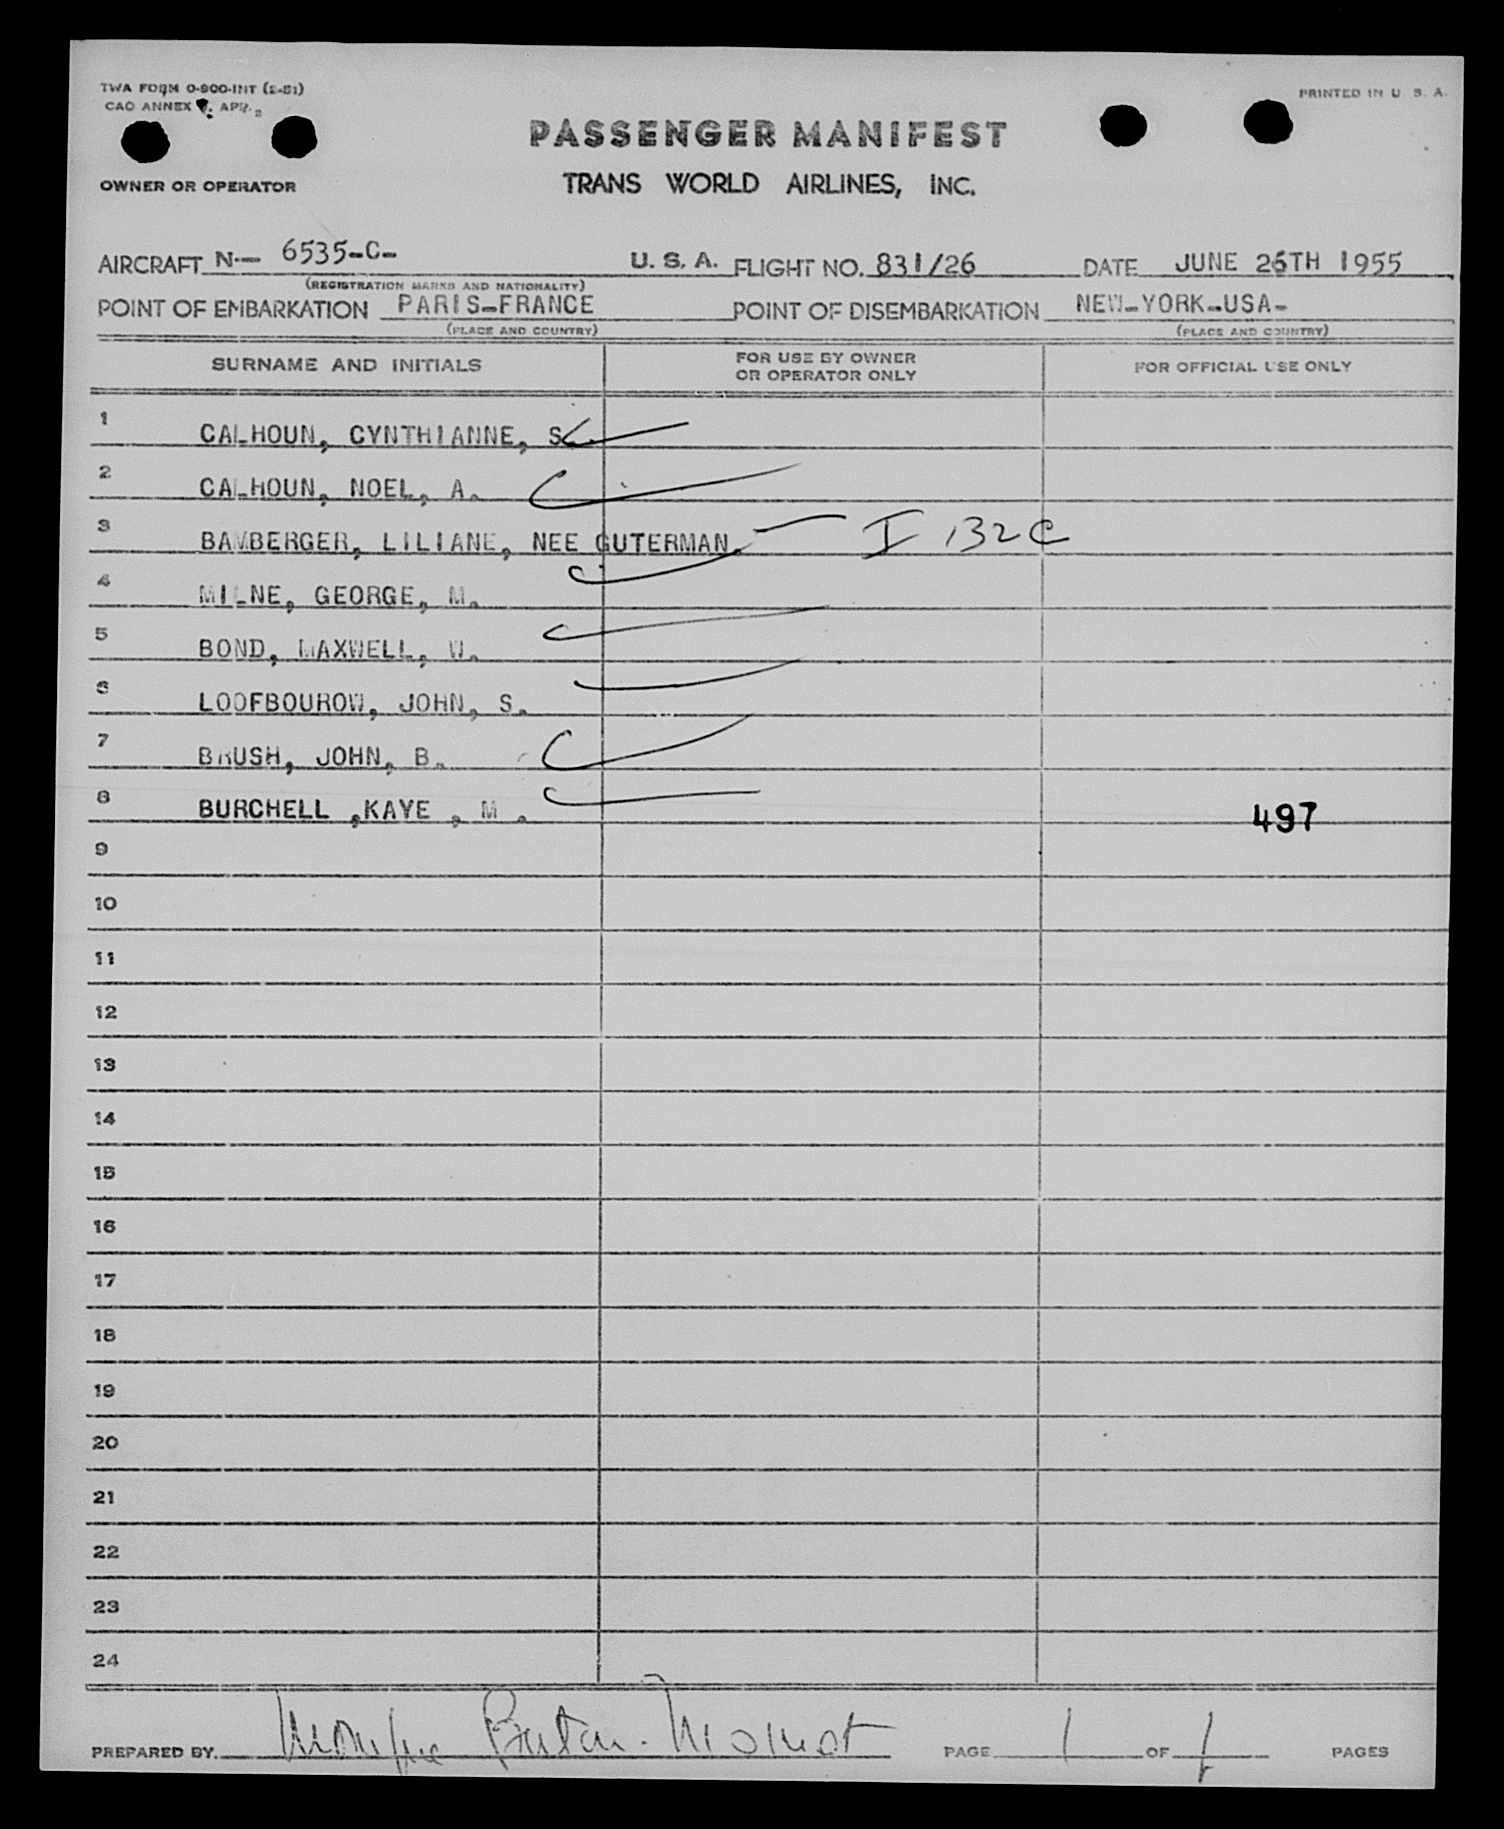 TWA FORM 0-900-INT (2-51)
PRINTED IN U. S. A.
PASSENGER MANIFEST
OWNER OR OPERATOR
TRANS WORLD AIRLINES, INC.
AIRCRAFT N-- 6535-C- U. S. A. FLIGHT NO. 831/26 DATE JUNE 26TH 1955
(REGISTRATION MARKS AND NATIONALITY)
POINT OF EMBARKATION PARIS-FRANCE POINT OF DISEMBARKATION NEW-YORK-USA-
(PLACE AND COUNTRY) (PLACE AND COUNTRY)
SURNAME AND INITIALS FOR USE BY OWNER OR OPERATOR ONLY FOR OFFICIAL USE ONLY
1 CALHOUN, CYNTHIANNE, S.
2 CALHOUN, NOEL, A.
3 BAMBERGER, LILIANE, NEE GUTERMAN. I 132C
4 MILNE, GEORGE, M.
5 BOND, MAXWELL, W.
6 LOOFBOUROW, JOHN, S.
7 BRUSH, JOHN, B.
8 BURCHELL ,KAYE , M . 497
9
10
11
12
13
14
15
16
17
18
19
20
21
22
23
24
PREPARED BY. PAGE 1 OF 1 PAGES